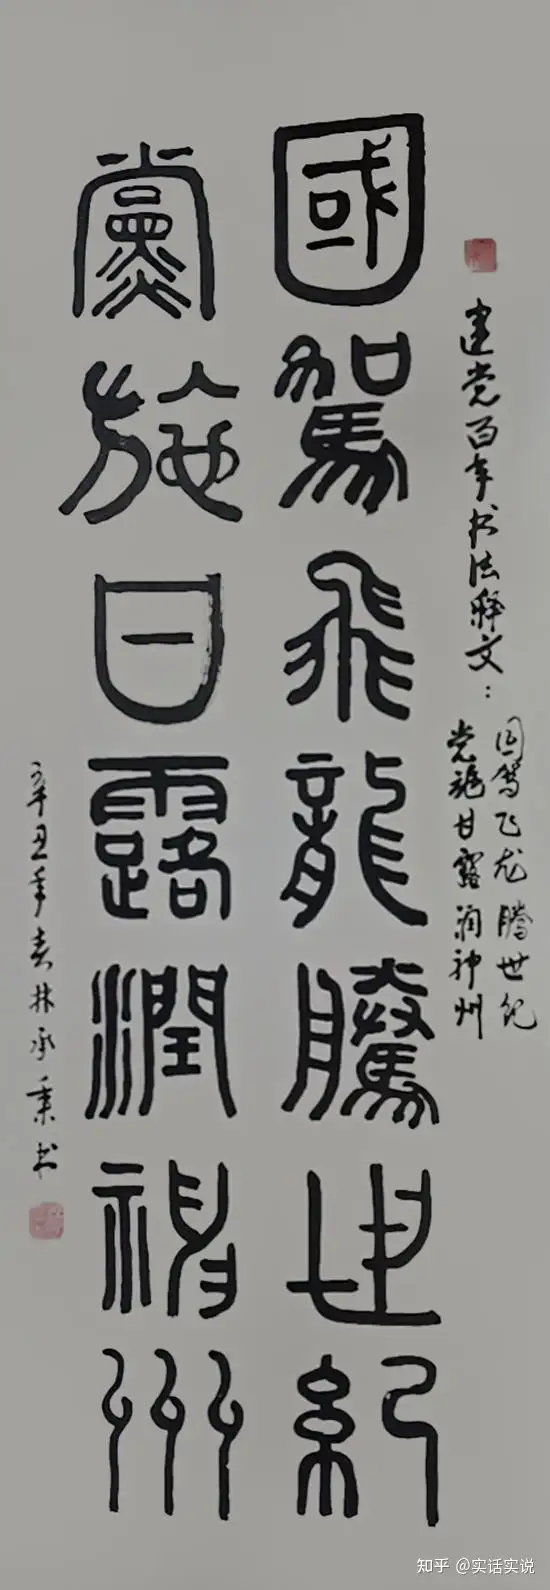 建党百年书法释文：
国驾飞龙腾世纪
党施甘露润神州
國駕飛龍騰世紀
黨施甘露潤神州
辛丑年春林承秉书
知乎 @实话实说